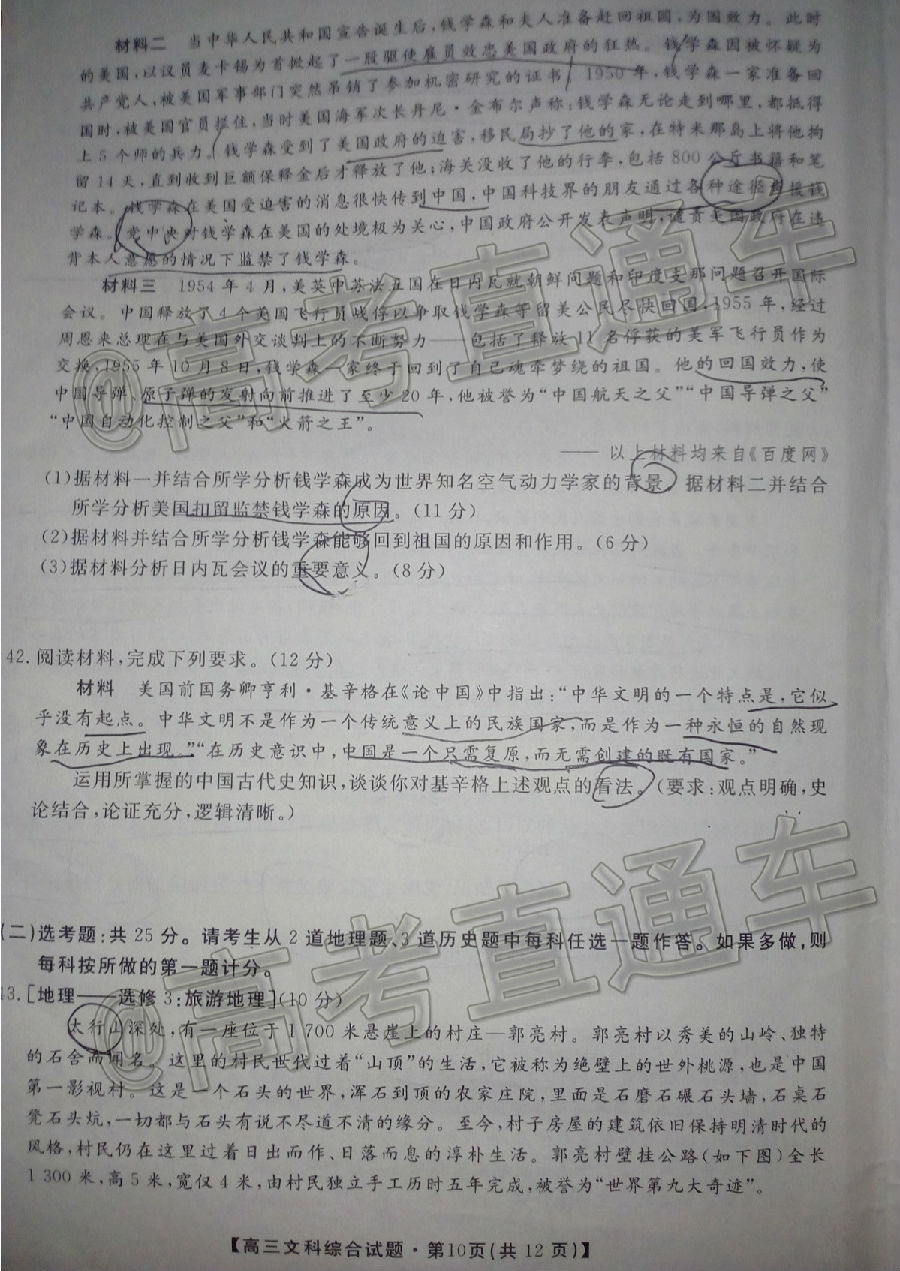 材料二　当中华人民共和国宣告诞生后,钱学森和夫人准备赶回祖国,为国效力。此时
的美国,以议员麦卡锡为首掀起了一股驱使雇员效忠美国政府的狂热。钱学森因被怀疑为
共产党人,被美国军事部门突然吊销了参加机密研究的证书。1950年,钱学森一家准备回
国时,被美国官员拦住,当时美国海军次长丹尼·金布尔声称:钱学森无论走到哪里,都抵得
上5个师的兵力。钱学森受到了美国政府的迫害,移民局抄了他的家,在特米那岛上将他拘
留14天,直到收到巨额保释金后才释放了他;海关没收了他的行李,包括800公斤书籍和笔
记本。钱学森在美国受迫害的消息很快传到中国,中国科技界的朋友通过各种途径声援钱
学森。党中央对钱学森在美国的处境极为关心,中国政府公开发表声明,谴责美国政府在违
背本人意愿的情况下监禁了钱学森。
材料三　1954年4月,美英中苏法五国在日内瓦就朝鲜问题和印度支那问题召开国际
会议。中国释放了4个美国飞行员战俘以争取钱学森等留美公民尽快回国,1955年,经过
周恩来总理在与美国外交谈判上的不断努力——包括了释放11名俘获的美军飞行员作为
交换,1955年10月8日,钱学森一家终于回到了自己魂牵梦绕的祖国。他的回国效力,使
中国导弹、原子弹的发射向前推进了至少20年,他被誉为“中国航天之父”“中国导弹之父”
“中国自动化控制之父”和“火箭之王”。
——以上材料均来自《百度网》
(1)据材料一并结合所学分析钱学森成为世界知名空气动力学家的背景。据材料二并结合
所学分析美国扣留监禁钱学森的原因。(11分)
(2)据材料并结合所学分析钱学森能够回到祖国的原因和作用。(6分)
(3)据材料分析日内瓦会议的重要意义。(8分)
42.阅读材料,完成下列要求。(12分)
材料　美国前国务卿亨利·基辛格在《论中国》中指出:“中华文明的一个特点是,它似
乎没有起点。中华文明不是作为一个传统意义上的民族国家,而是作为一种永恒的自然现
象在历史上出现。”“在历史意识中,中国是一个只需复原,而无需创建的既有国家。”
运用所掌握的中国古代史知识,谈谈你对基辛格上述观点的看法。(要求:观点明确,史
论结合,论证充分,逻辑清晰。)
(二)选考题:共25分。请考生从2道地理题、3道历史题中每科任选一题作答。如果多做,则
每科按所做的第一题计分。
43.[地理——选修3:旅游地理](10分)
太行山深处,有一座位于1 700米悬崖上的村庄—郭亮村。郭亮村以秀美的山岭、独特
的石舍而闻名。这里的村民世代过着“山顶”的生活,它被称为绝壁上的世外桃源,也是中国
第一影视村。这是一个石头的世界,浑石到顶的农家庄院,里面是石磨石碾石头墙,石桌石
凳石头炕,一切都与石头有说不尽道不清的缘分。至今,村子房屋的建筑依旧保持明清时代的
风格,村民仍在这里过着日出而作、日落而息的淳朴生活。郭亮村壁挂公路(如下图)全长
1 300米,高5米,宽仅4米,由村民独立手工历时五年完成,被誉为“世界第九大奇迹”。
【高三文科综合试题·第10页(共12页)】
@高考直通车
@高考直通车